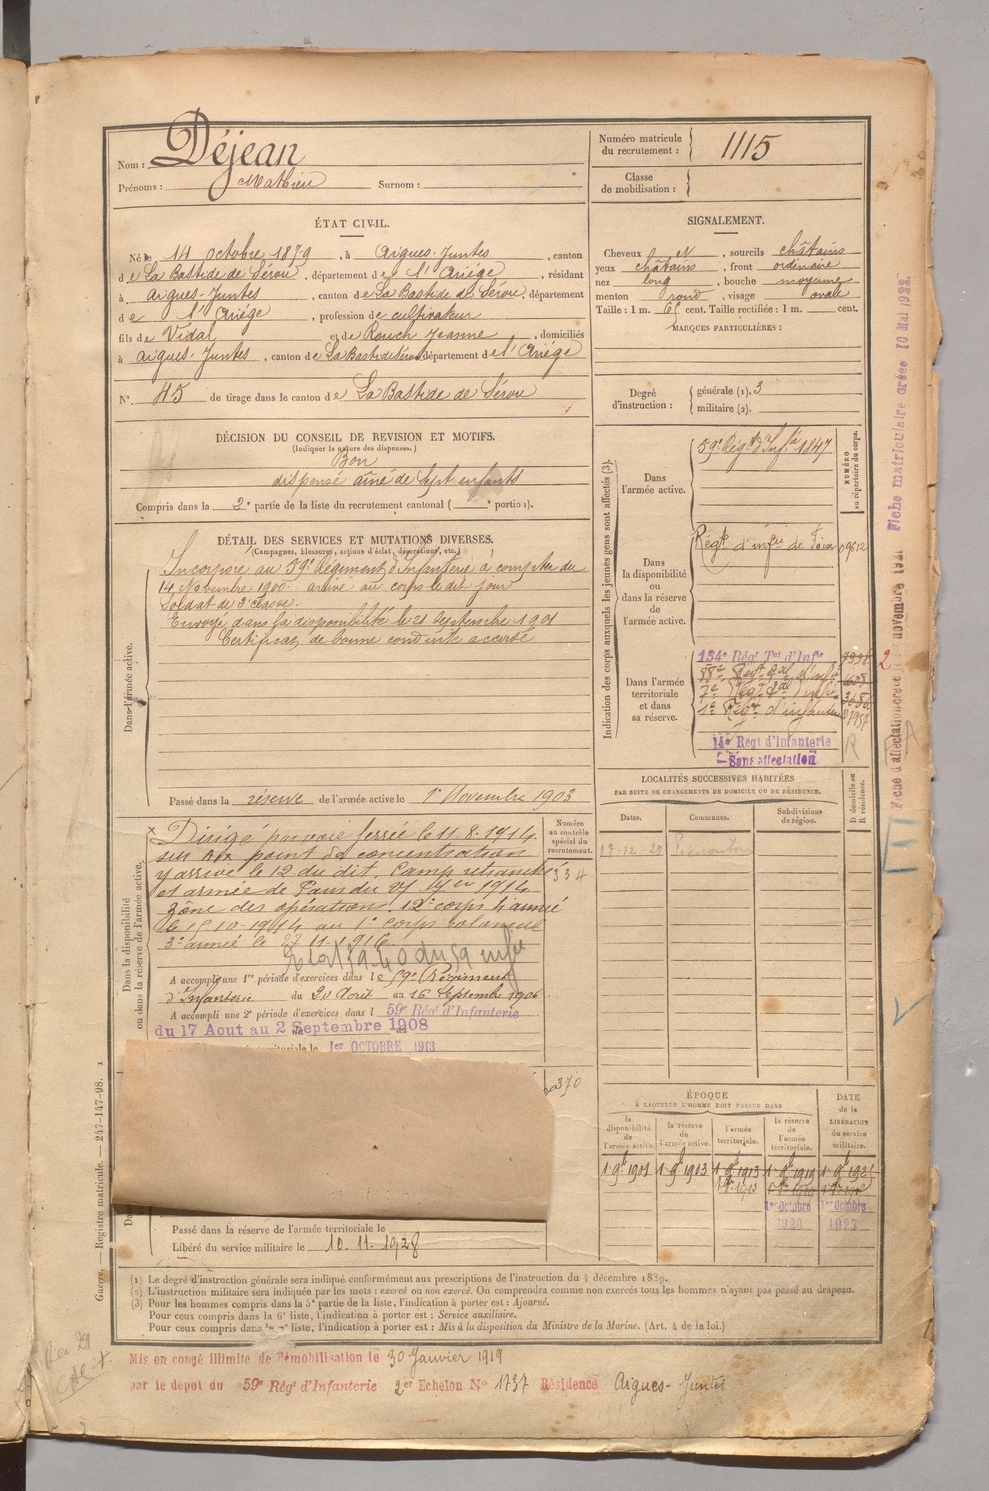 Nom : Déjean
Prénoms : Mathieu Surnom :
Numéro matricule du recrutement : 1115
Classe de mobilisation :
ÉTAT CIVIL.
Né le 14 octobre 1879, à Aigues-Juntes, canton
de La Bastide de Sérou, département de l'Ariége, résidant
à Aigues-Juntes, canton de La Bastide de Sérou, département
de l'Ariége, profession de cultivateur
fils de Vidal et de Rouch Jeanne, domiciliés
à Aigues-Juntes, canton de La Bastide Sérou département de l'Ariége
N° 45 de tirage dans le canton de La Bastide de Sérou
SIGNALEMENT.
Cheveux et sourcils châtains
yeux châtains, front ordinaire
nez long, bouche moyenne
menton rond, visage ovale
Taille : 1 m. 65 cent. Taille rectifiée : 1 m. cent.
MARQUES PARTICULIÈRES :
Degré d'instruction : générale (1). 3
militaire (2).
DÉCISION DU CONSEIL DE REVISION ET MOTIFS.
(Indiquer la nature des dispenses.)
Bon
dispensé aîné de sept enfants
Compris dans la 2e partie de la liste du recrutement cantonal ( e portion).
DÉTAIL DES SERVICES ET MUTATIONS DIVERSES.
(Campagnes, blessures, actions d'éclat, décorations, etc.)
Dans l'armée active.
Incorporé au 59e Régiment d'Infanterie à compter du
14 Novembre 1900. arrivé au corps le dit jour
Soldat de 2e classe.
Envoyé dans la disponibilité le 21 Septembre 1901
Certificat de bonne conduite accordé
Passé dans la réserve de l'armée active le 1er Novembre 1903
Indication des corps auxquels les jeunes gens sont affectés (3).
NUMÉRO au répertoire du corps.
Dans l'armée active.
59e Régt d'Infie 1847
Dans la disponibilité ou dans la réserve de l'armée active.
Régt d'infie de Foix
Dans l'armée territoriale et dans sa réserve.
134e Régt Tal d'Infie
1er Régt d'infanterie
14e Regt d'Infanterie
Sans affectation
LOCALITÉS SUCCESSIVES HABITÉES
PAR SUITE DE CHANGEMENTS DE DOMICILE OU DE RÉSIDENCE.
Dates. Communes. Subdivisions de région. D domicile ou R résidence.
Dans la disponibilité ou dans la réserve de l'armée active.
Numéro au contrôle spécial du recrutement.
334
Dirigé par voie ferrée le 11.8.1914
sur Aix point de concentration
y arrive le 12 du dit. Camp retranché
et armée de Paris du
zône des opération. 12e corps d'armée
le 15.10-1914 au 1er corps colonial
3e armée le 23.11.1916
A accompli une 1re période d'exercices dans le 59e Régiment
d'Infanterie du 20 Aout au 16 Septembre 1906
A accompli une 2e période d'exercices dans l 59e Régt d'Infanterie
du 17 Aout au 2 Septembre 1908
1er OCTOBRE 1913
370
ÉPOQUE
À LAQUELLE L'HOMME DOIT PASSER DANS
DATE de la LIBÉRATION du service militaire.
la disponibilité de l'armée active. la réserve de l'armée active. l'armée territoriale. la réserve de l'armée territoriale.
1 9b 1901 1 9b 1903 1 9b 1913 1 9b 1919
1er Octobre 1920 1er Octobre 1927
Passé dans la réserve de l'armée territoriale le
Libéré du service militaire le 10.11.1928
(1) Le degré d'instruction générale sera indiqué conformément aux prescriptions de l'instruction du 4 décembre 1889.
(2) L'instruction militaire sera indiquée par les mots : exercé ou non exercé. On comprendra comme non exercés tous les hommes n'ayant pas passé au drapeau.
(3) Pour les hommes compris dans la 5e partie de la liste, l'indication à porter est : Ajourné.
Pour ceux compris dans la 6e liste, l'indication à porter est : Service auxiliaire.
Pour ceux compris dans la 7e liste, l'indication à porter est : Mis à la disposition du Ministre de la Marine. (Art. 4 de la loi.)
Mis en congé illimité de démobilisation le 30 Janvier 1919
par le dépot du 59e Régt d'Infanterie 2er Echelon N° 1737 Résidence Aigues-Juntes
Guerre. — Registre matricule. — 247-147-98.
Fiche matriculaire créée 10 Mai 1922